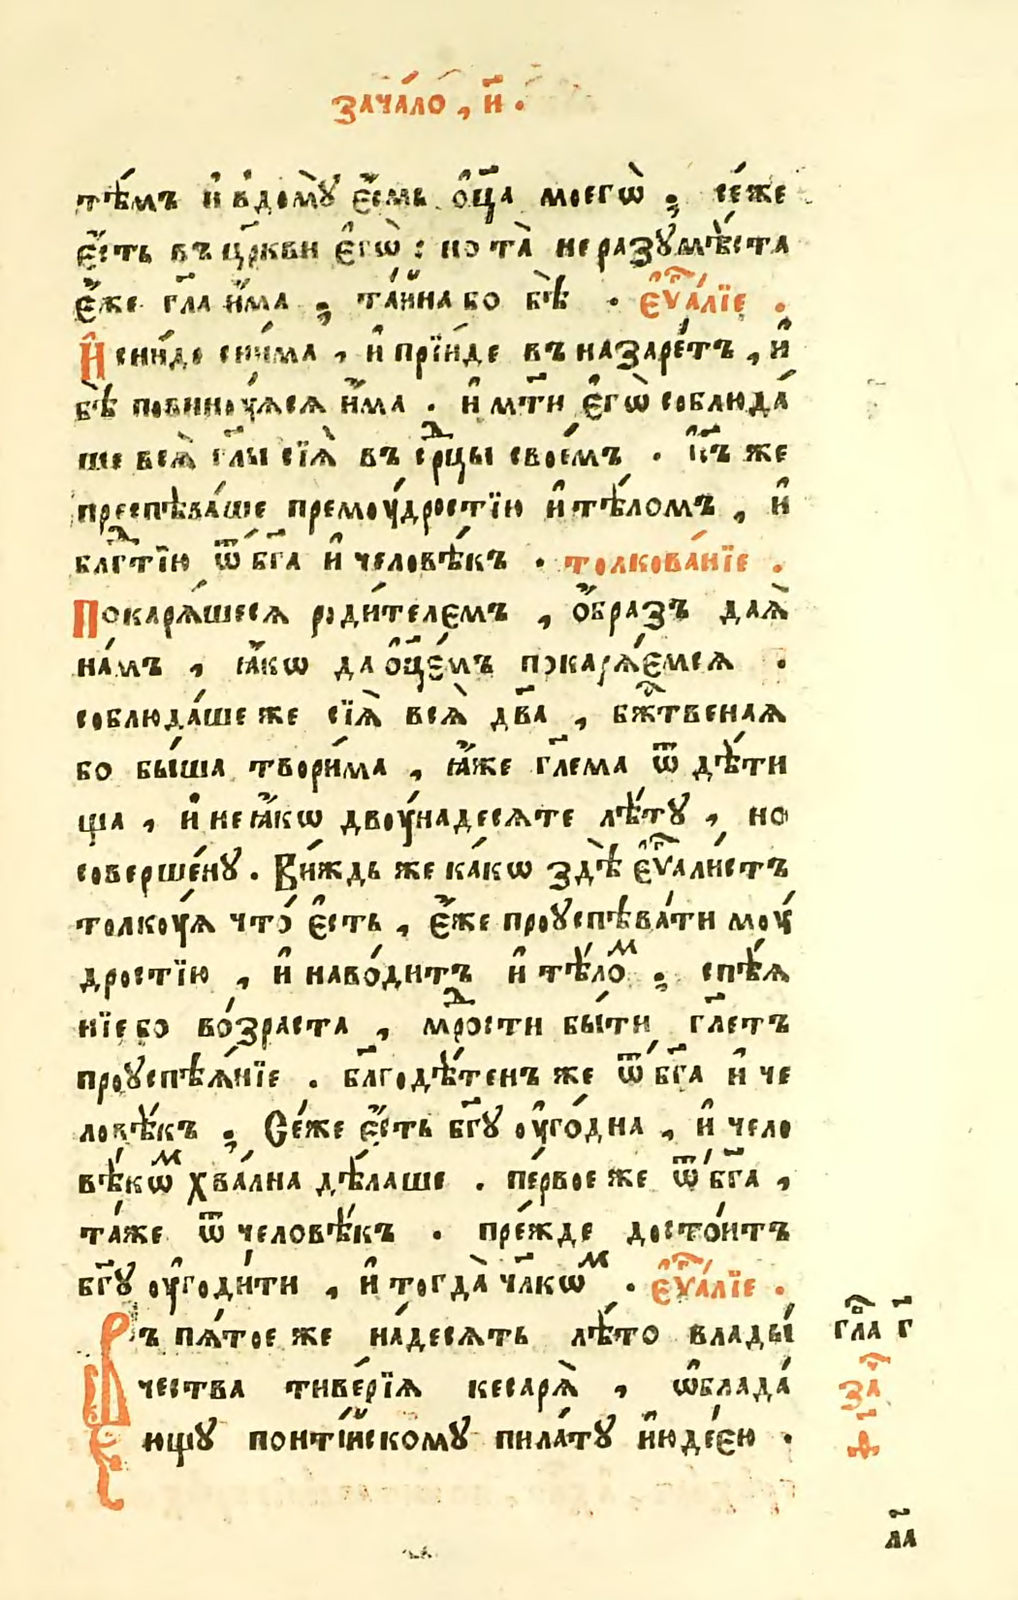 зача́ло , и҃ .
тѣ́мъ и҆ в̾домꙋ̀ є҆́смь о҆ц҃а моегѡ̀ , се́же
є҆́сть въ цр҃кви є҆гѡ̀ : но та̀ не разꙋмѣ́ста
є҆́же гл҃а и҆́ма , та́йна бо бѣ̀ . є҆ѵⷢ҇а́лїе .
И҆ сни́де сни́ма , и҆ прїи́де въ назаре́тъ , и҆
бѣ̀ повинꙋ́ѧсѧ и҆́ма . и҆ мт҃и є҆гѡ̀ соблюда́
ше всѧ̀ гл҃ы сїѧ̀ въ срⷣцы свое́мъ . І҆с҃ъ же
преспѣва́ше премоу́дростїю и҆ тѣ́ломъ , и҆
блгⷣтїю ѿ бг҃а и҆ человѣ́къ . толкова́нїе .
Покарѧ́шесѧ роди́телємъ , ѡ҆́бразъ даѧ̀
на́мъ , ꙗ҆́кѡ да ѻ҆ц҃є́мъ покарѧ́ємсѧ .
соблюда́ше же сїѧ̀ всѧ̀ дв҃а , бж҃твенаѧ
бо бы́ша твори́ма , ꙗ҆́же гл҃ема ѿ дѣ́ти
ща , и҆ не ꙗ҆́кѡ двоу́надесѧте лѣ́тꙋ , но
соверше́нꙋ . Ви́ждь же ка́кѡ здѣ̀ є҆ѵⷢ҇али́стъ
толкоу́ѧ что́ є҆сть , є҆́же проуспѣва́ти моу́
дростїю , и҆ наво́дитъ и҆ тѣ́лоⷨ . спѣ́ѧ
нїе бо во́зраста , мⷣрости бы́ти гл҃етъ
проуспѣѧ́нїе . бл҃годѣ́тенъ же ѿ бг҃а и҆ че
ловѣ́къ , Се́же є҆́сть бг҃ꙋ оу҆го́дна , и҆ чело
вѣ́кѡⷨ хва́лна дѣ́лаше . пе́рвое же ѿ бг҃а ,
та́же ѿ человѣ́къ . пре́жде досто́итъ
бг҃ꙋ оу҆годи́ти , и҆ тогда̀ чл҃кѡⷨ . є҆ѵⷢ҇а́лїе .
Въ пѧ́тое же на́десѧть лѣ́то влады́
чества тиве́рїѧ кесарѧ̀ , ѡ҆блада́
ющꙋ понті́йскомꙋ пила́тꙋ и҆юде́єю .
гла г҃
заⷱ҇
ѳ҃
ла҃